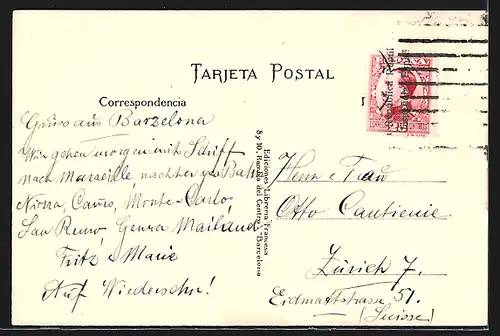 TARJETA POSTAL
Correspondencia
Grüsse aus Barzelona
Wir gehen morgen mit Schiff
nach Marseille, nachher per Bahn
Nizza, Monte-Carlo,
San Remo, Genua Mailand
Fritz & Marie
Auf Wiedersehn!
Ediciones Librería Francesa
8 y 10, Rambla del Centro - Barcelona
Herr & Frau
Otto Cautienie
Zürich 7.
Eidmattstrasse 51.
(Suisse)